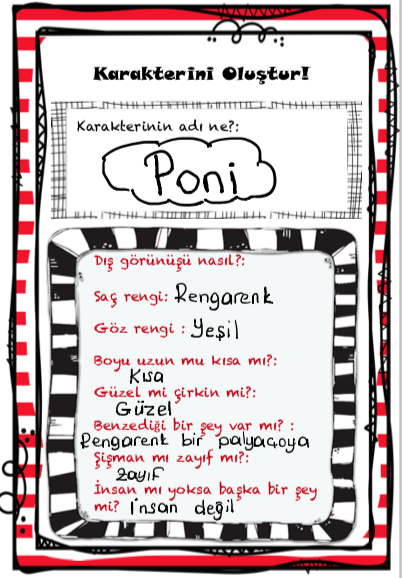 Karakterini Oluştur!
Karakterinin adı ne?:
Poni
Dış görünüşü nasıl?:
Saç rengi: Rengarenk
Göz rengi : Yeşil
Boyu uzun mu kısa mı?:
Kısa
Güzel mi çirkin mi?:
Güzel
Benzediği bir şey var mı? :
Rengarenk bir palyaçoya
Şişman mı zayıf mı?:
zayıf
İnsan mı yoksa başka bir şey
mi? İnsan değil